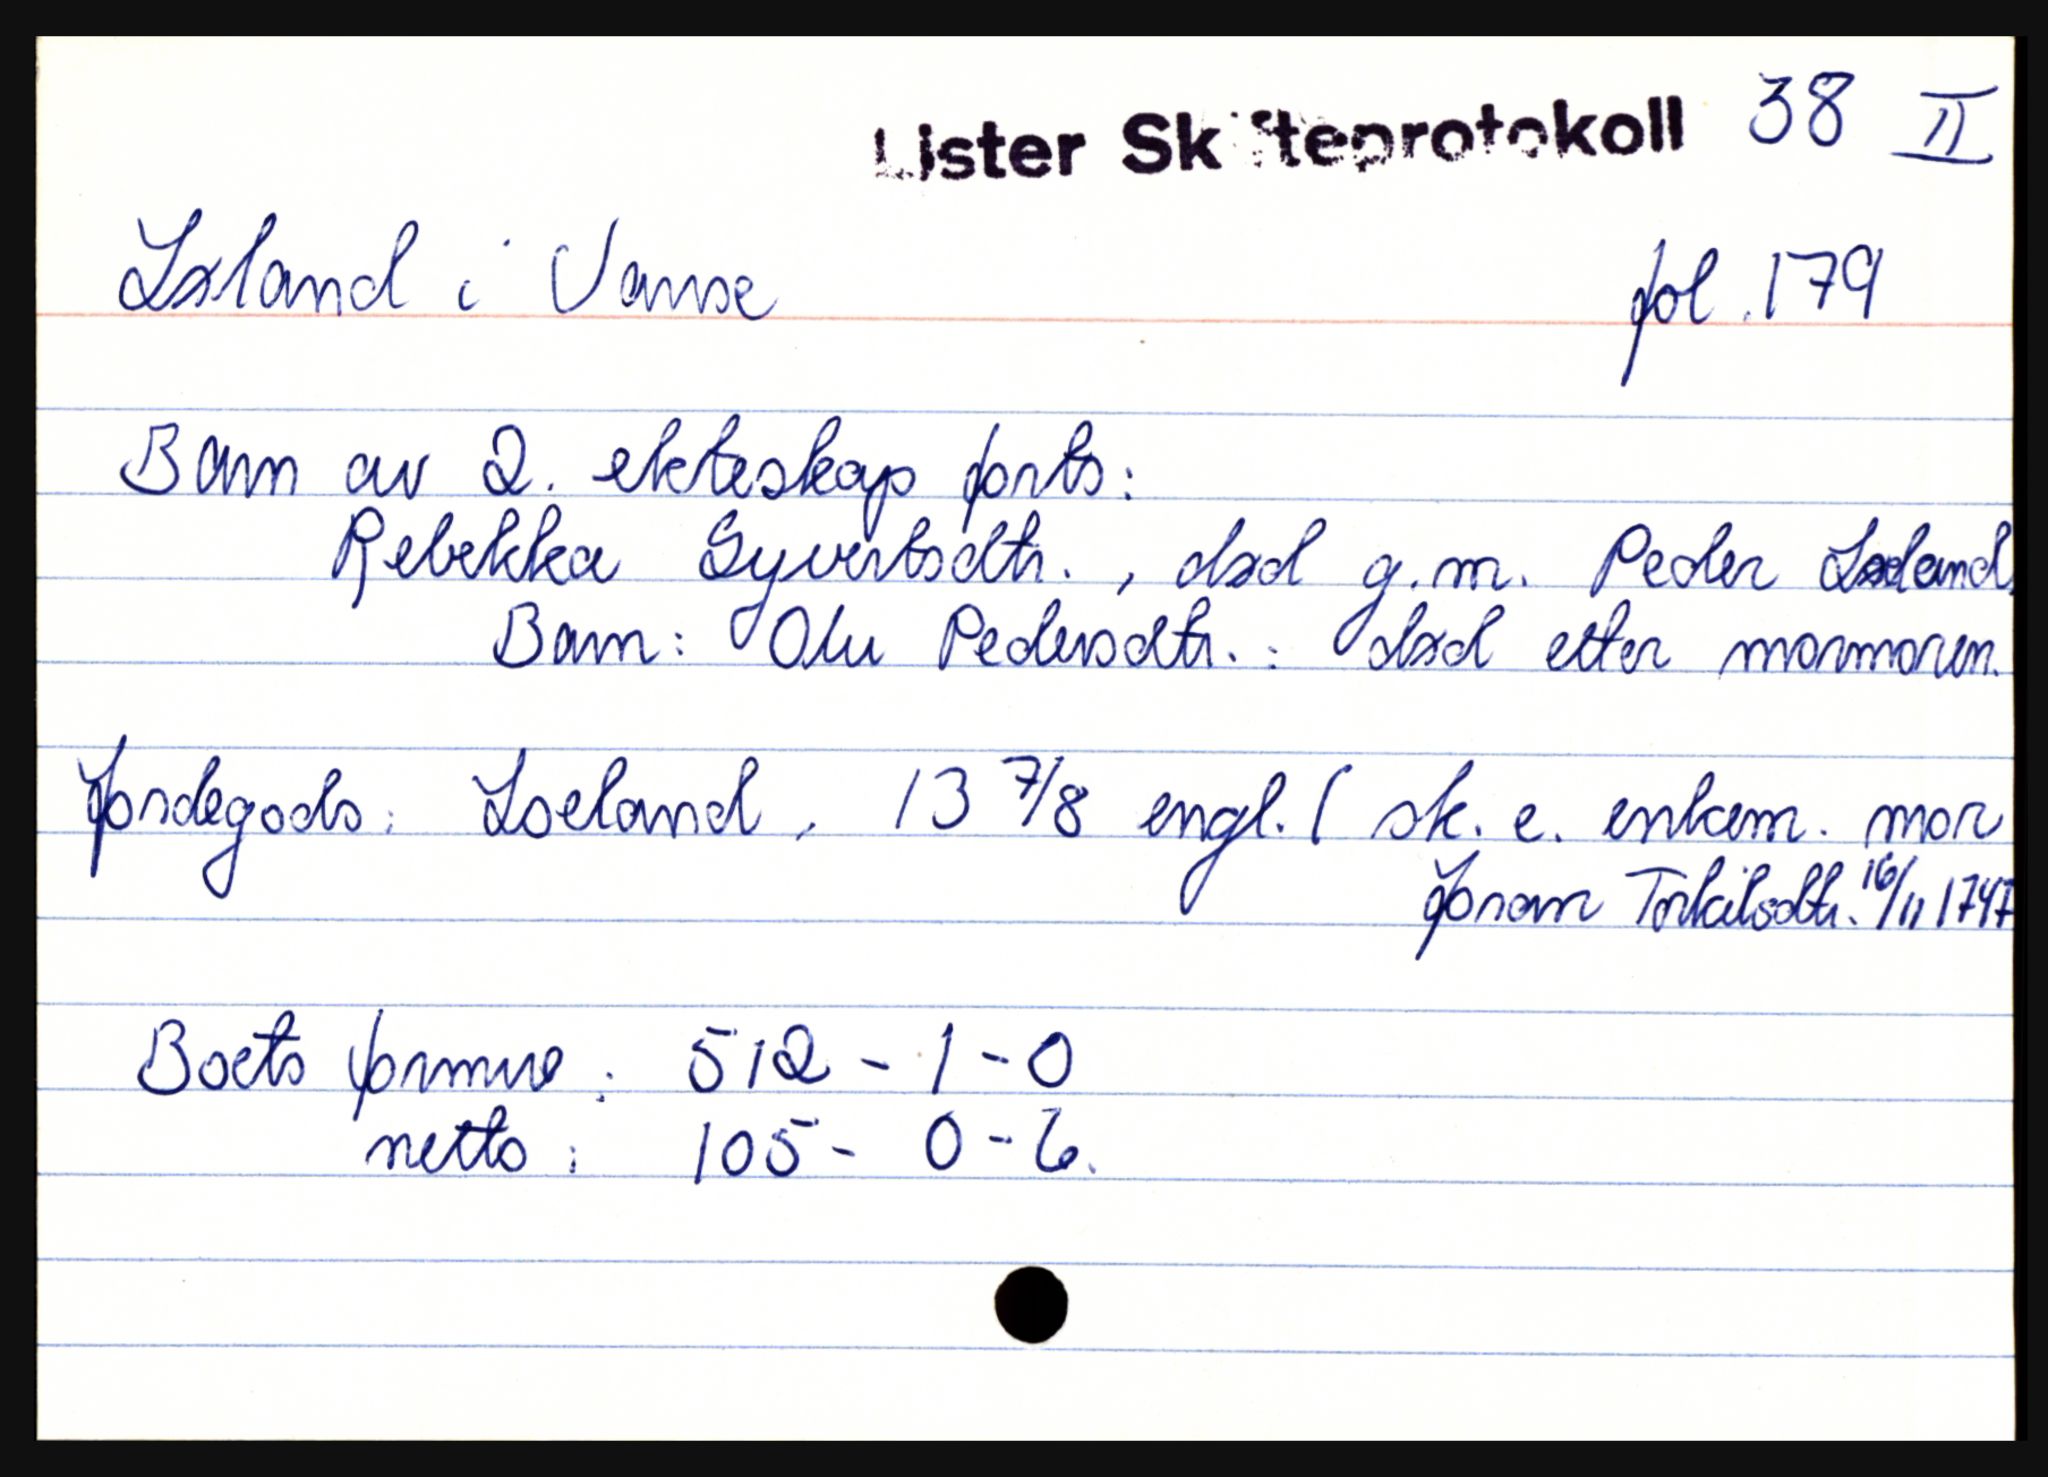 Lister Skifteprotokoll 38 II
Løland i Vanse fol. 179
Barn av 2. ekteskap forts:
Rebekka Syvertsdtr., død g.m. Peder Løland,
Barn: Olu Pedersdtr.: død etter mormoren.
Jordegods: Loeland, 13 7/8 engl. ( sk. e. enkem. mor
Joran Torkilsdtr. 16/11 1747
Boets formue: 512 - 1 - 0
netto: 105 - 0 - 6.